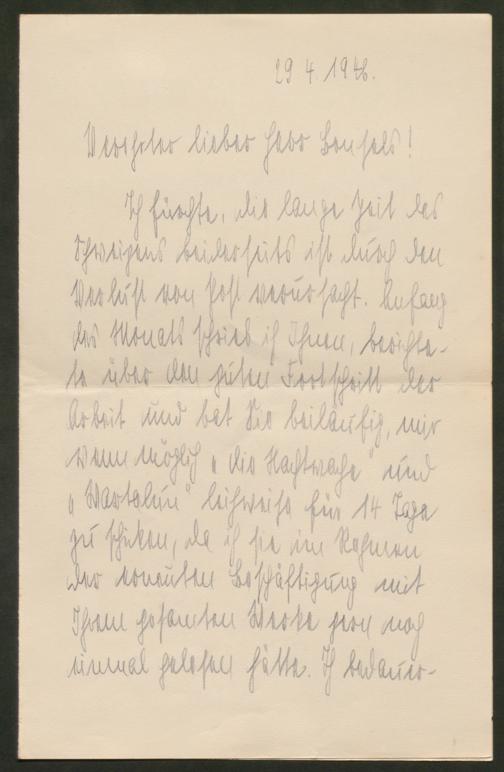 29 4 1946.
Verehrter lieber Herr Bonsels!
Ich fürchte, die lange Zeit des
Schweigens beiderseits ist durch den
Verlust von Post verursacht. Anfang
des Monats schrieb ich Ihnen, berichte-
te über den guten Fortschritt der
Arbeit und bat Sie beiläufig, mir
wenn möglich „die Nachtwache" und
„Wartalun" leihweise für 14 Tage
zu schicken, da ich sie im Rahmen
der erneuten Beschäftigung mit
Ihrem gesamten Werke gern noch
einmal gelesen hätte. Ich bedauer-